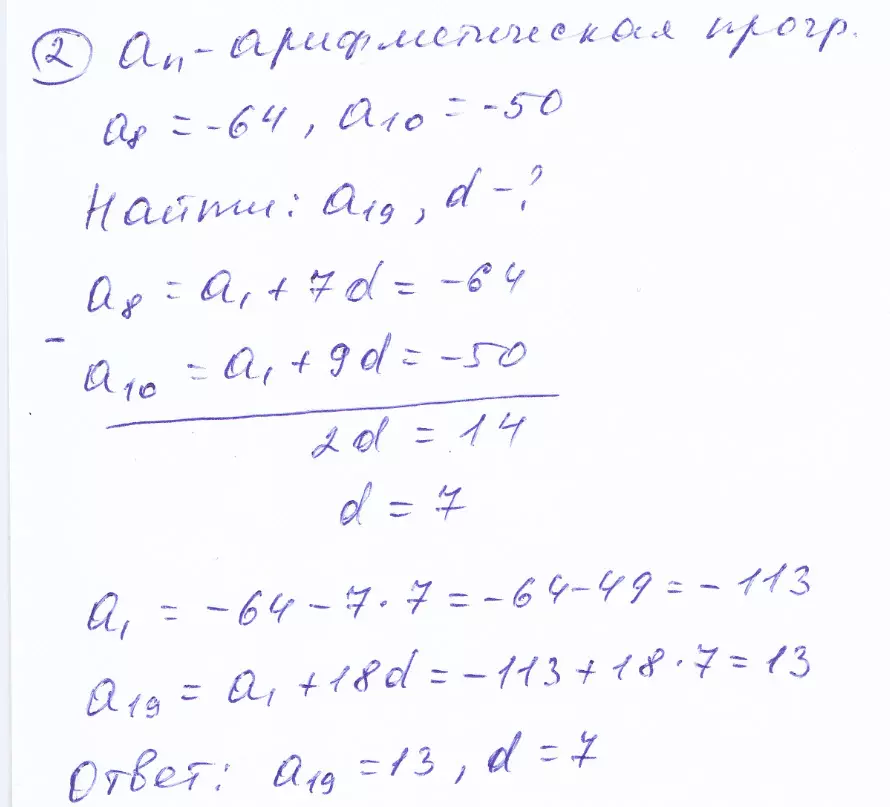 ② aₙ - арифметическая прогр.
a₈ = -64, a₁₀ = -50
Найти: a₁₉, d - ?
a₈ = a₁ + 7d = -64
-
a₁₀ = a₁ + 9d = -50
2d = 14
d = 7
a₁ = -64 - 7·7 = -64-49 = -113
a₁₉ = a₁ + 18d = -113 + 18·7 = 13
Ответ: a₁₉ = 13, d = 7